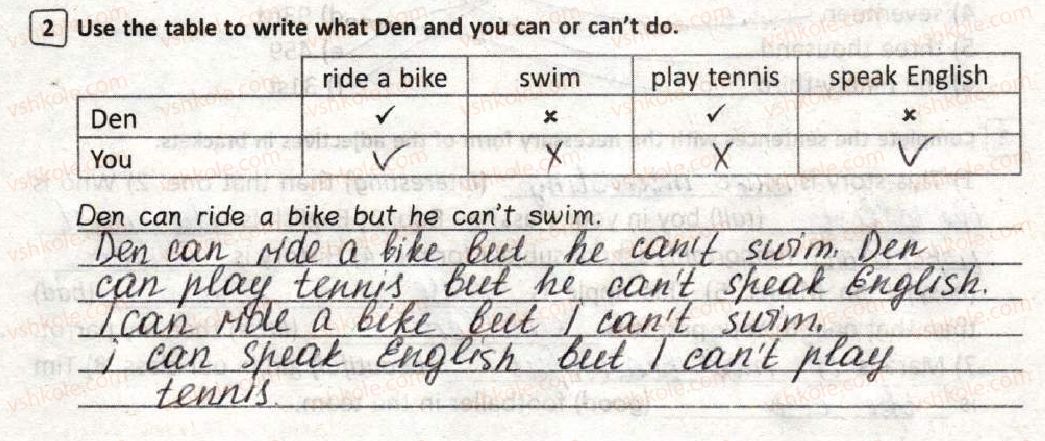 2 Use the table to write what Den and you can or can't do.
ride a bike swim play tennis speak English
Den ✓ × ✓ ×
You ✓ X X ✓
Den can ride a bike but he can't swim.
Den can ride a bike but he can't swim. Den
can play tennis but he can't speak English.
I can ride a bike but I can't swim.
I can speak English but I can't play
tennis.